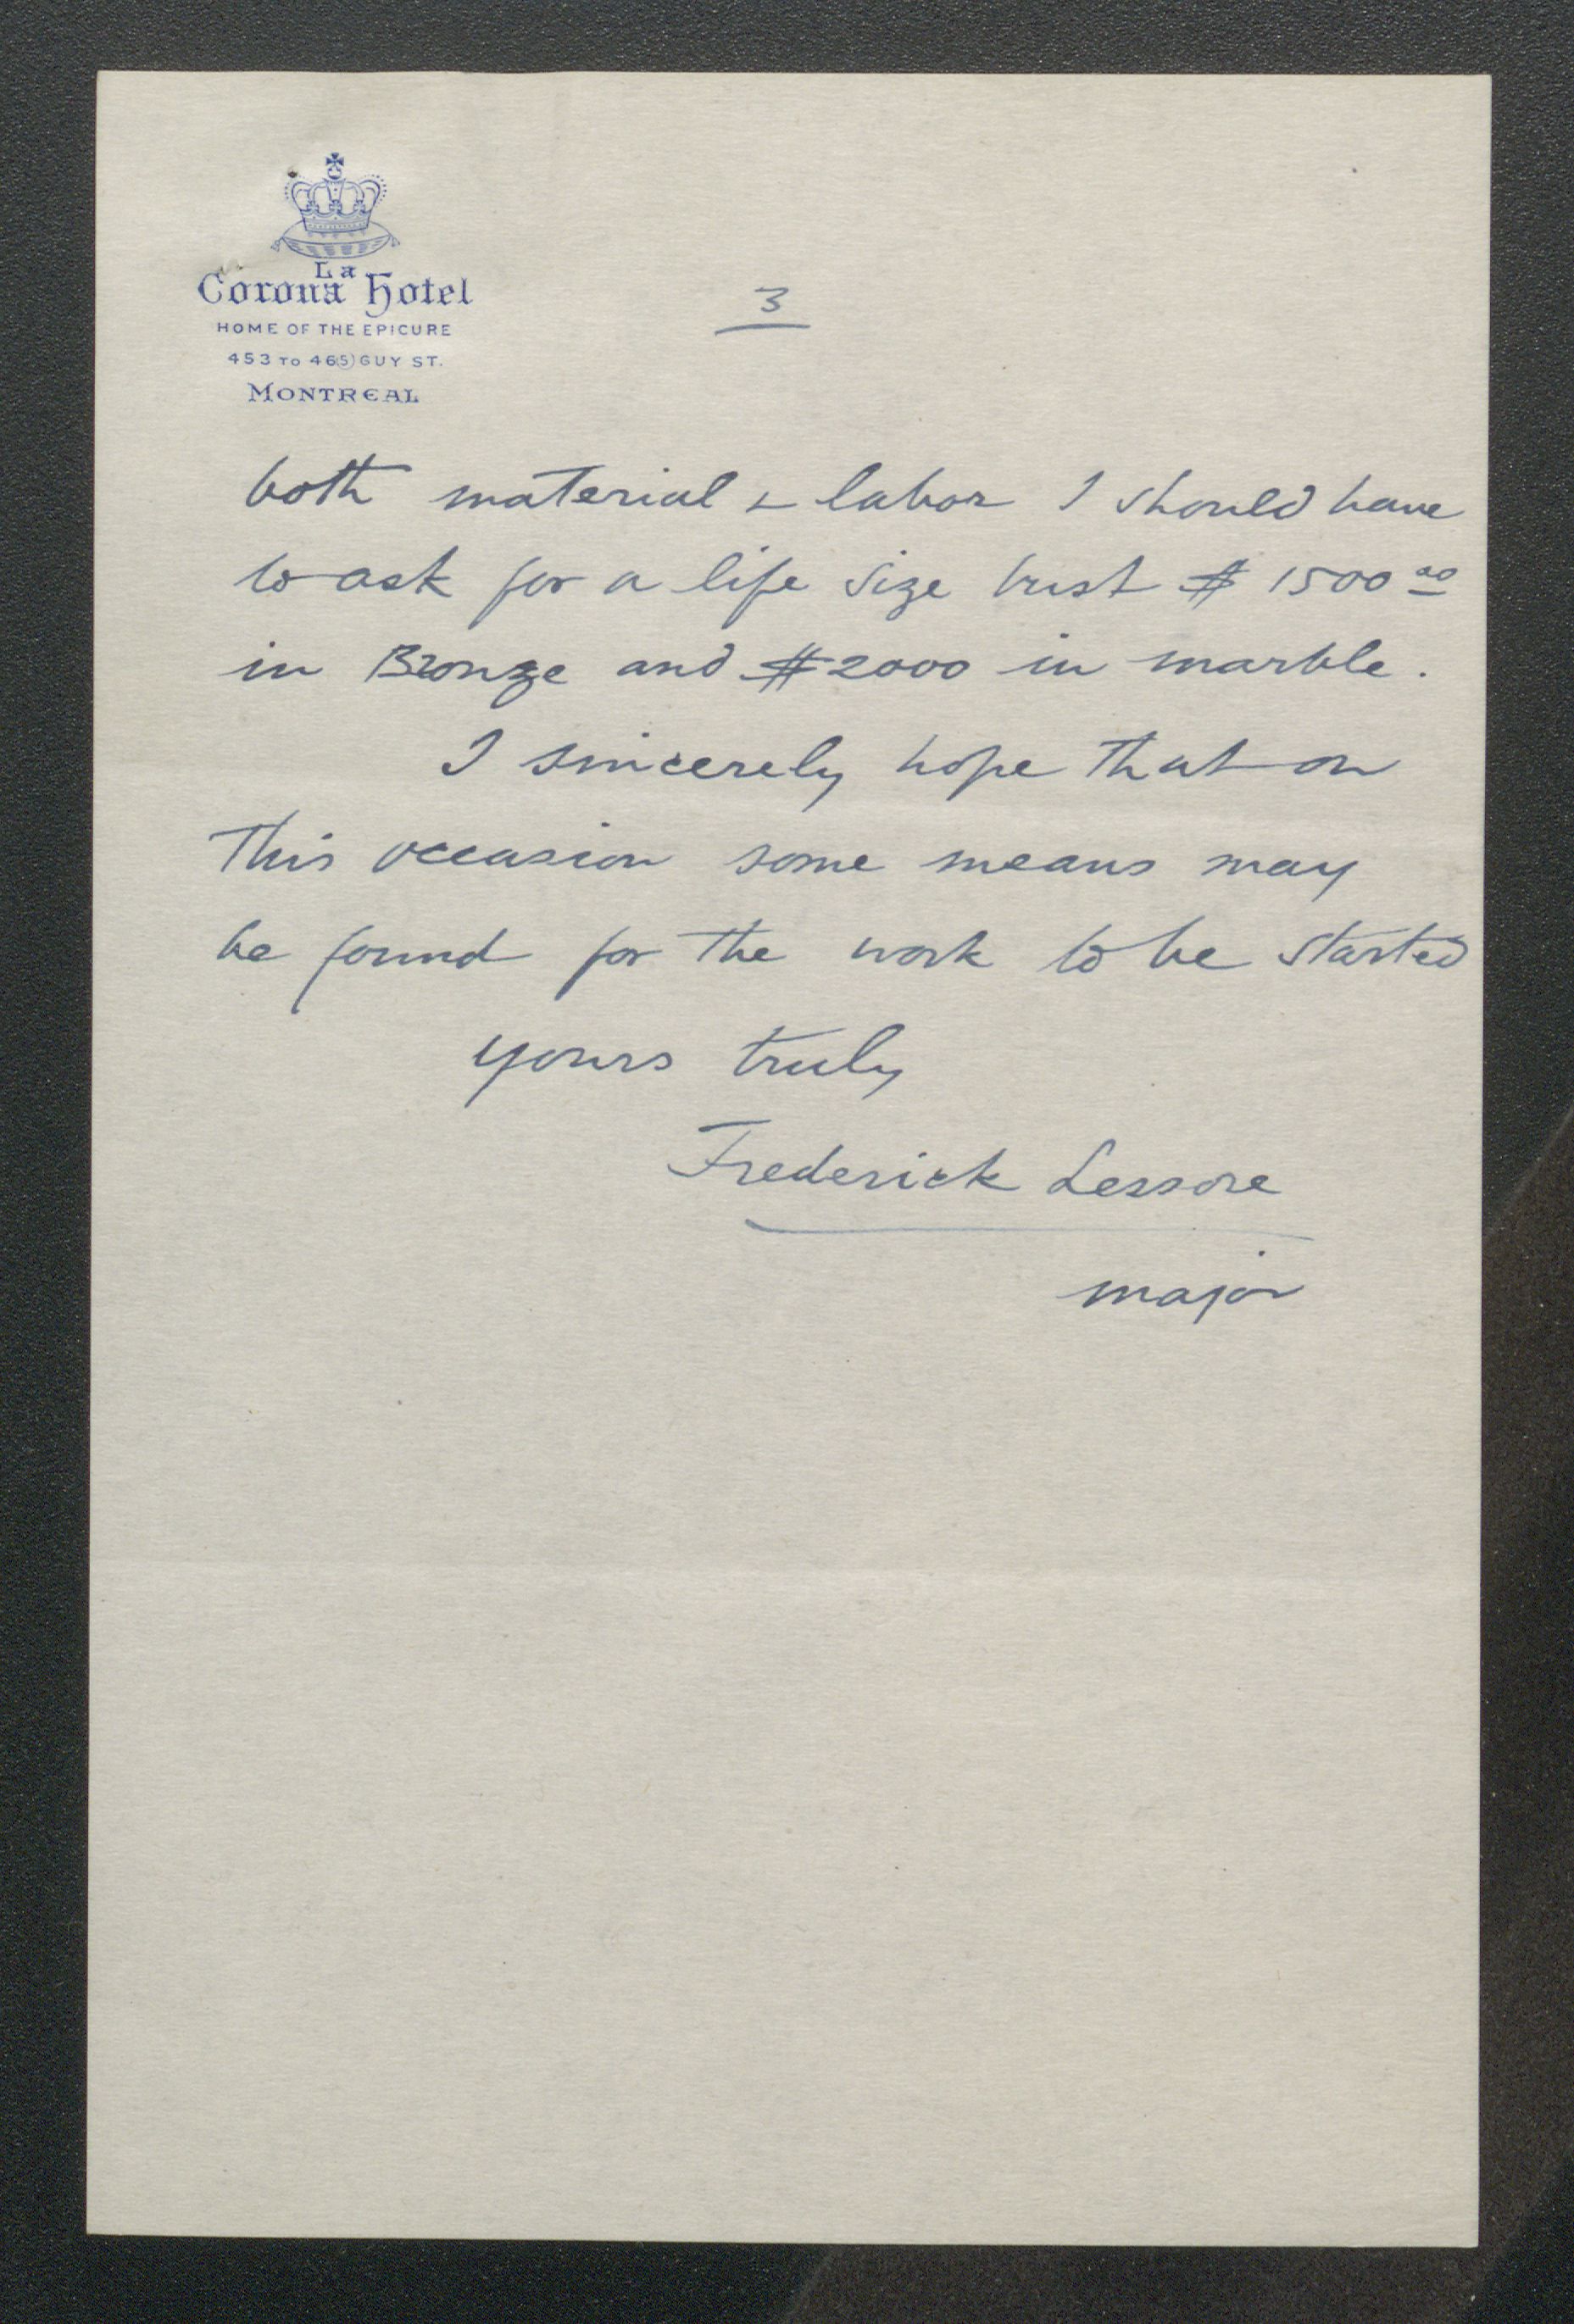 La
Corona Hotel
HOME OF THE EPICURE
453 TO 465 GUY ST.
MONTREAL
3
both material & labor I should have
to ask for a life size bust $ 1500 00
in Bronze and $2000 in marble.
I sincerely hope that on
This occasion some means may
be found for the work to be started
yours truly
Frederick Lessore
major